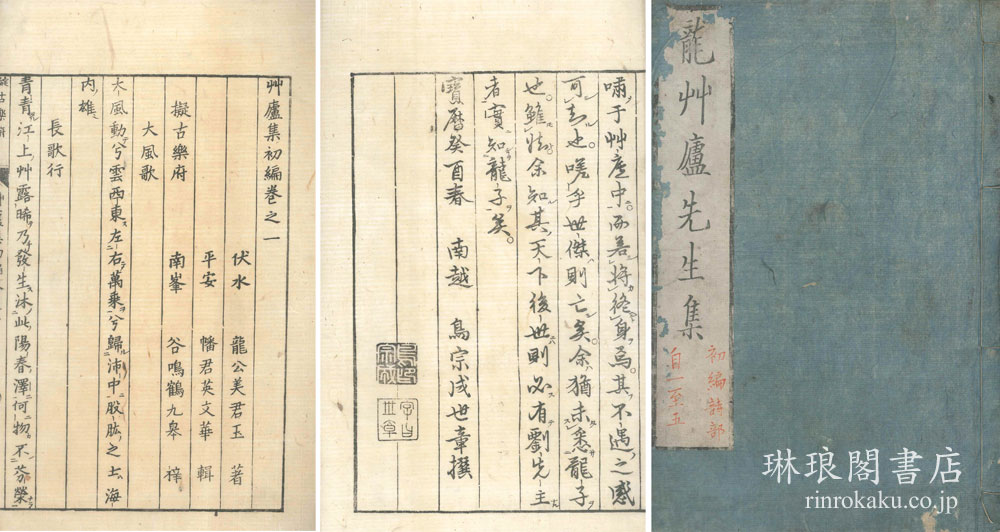 龍艸廬先生集
初編詩部
自一至五
嘯于艸庐中。而若將終身焉。其不遇之感
可知也。嗟乎世傑則亡矣。余猶未悉龍子
也。雖然余知其天下後世則必有劉先主
者實知龍子矣。
寶曆癸酉春 南越 鳥宗成世章撰
艸廬集初編卷之一
伏水 龍公美君玉 著
平安 幡君英文華 輯
擬古樂府 南峯 谷鳴鶴九皋 梓
大風歌
大風動兮雲西東左右萬乘兮歸沛中股肱之士海
内雄
長歌行
青青江上艸露晞乃發生沐此陽春澤何物不芬榮
琳琅閣書店
rinrokaku.co.jp